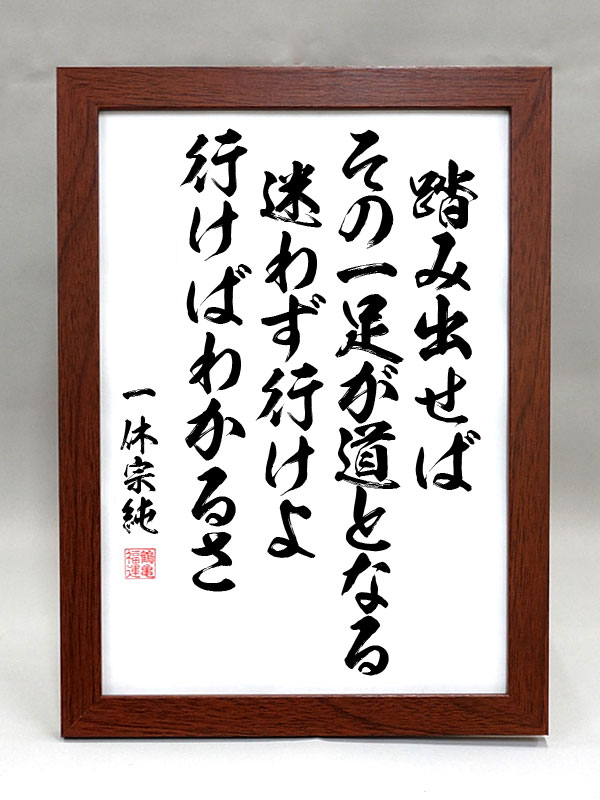 踏み出せば
その一足が道となる
迷わず行けよ
行けばわかるさ
一休宗純
鶴亀
福運